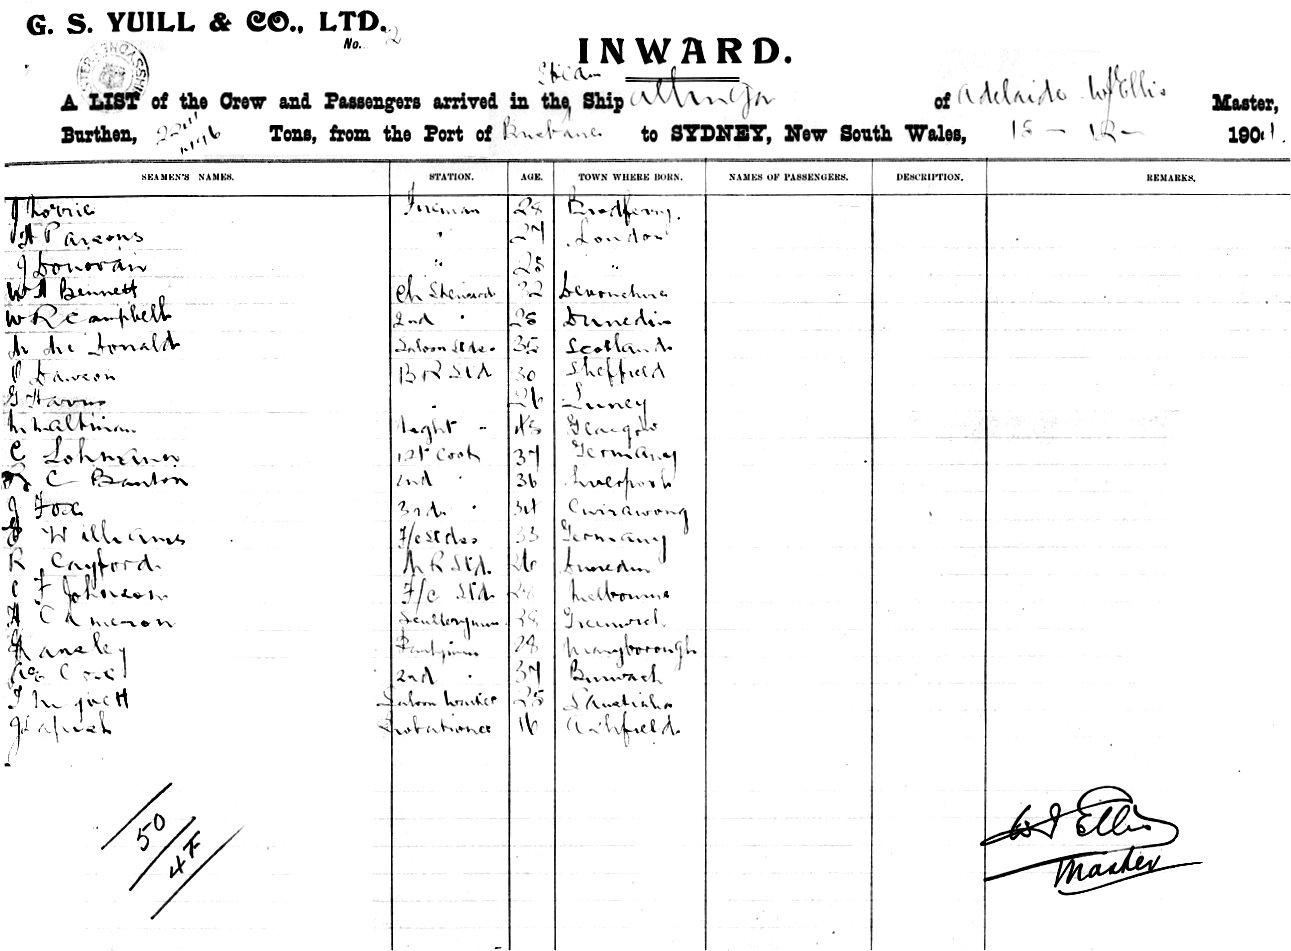 G. S. YUILL & CO., LTD.
No. 2
INWARD.
Steam
A LIST of the Crew and Passengers arrived in the Ship of Adelaide W J Ellis Master,
Burthen, Tons, from the Port of Brisbane to SYDNEY, New South Wales, 18 - 12 - 1901.
SEAMEN'S NAMES. STATION. AGE. TOWN WHERE BORN. NAMES OF PASSENGERS. DESCRIPTION. REMARKS.
J Fireman 28
H Parsons " 27 London
J Donovan " 28 "
W A Bennett Ch Steward 32 Devonshire
W R Campbell 2nd " 28 Dunedin
Mc Donald Saloon Stdss 35 Scotland
Dawson B R Std 30 Sheffield
G Harris " 26
Night " 48 Glasgow
C Lohmann 1st Cook 37 Germany
C Banton 2nd " 36 Liverpool
J Fox 3rd " 34
Williams F/c Stdss 33 Germany
R Cayford M R Std. 26 Dunedin
C F Johnson F/c Std 28 Melbourne
H Cameron Sculleryman 28 Greenwich
G Hansley Pantryman 28 Maryborough
Cox 2nd " 37
Saloon Waiter 25 S Australia
J Probationer 16 Ashfield
50
4 F
W J Ellis
Master